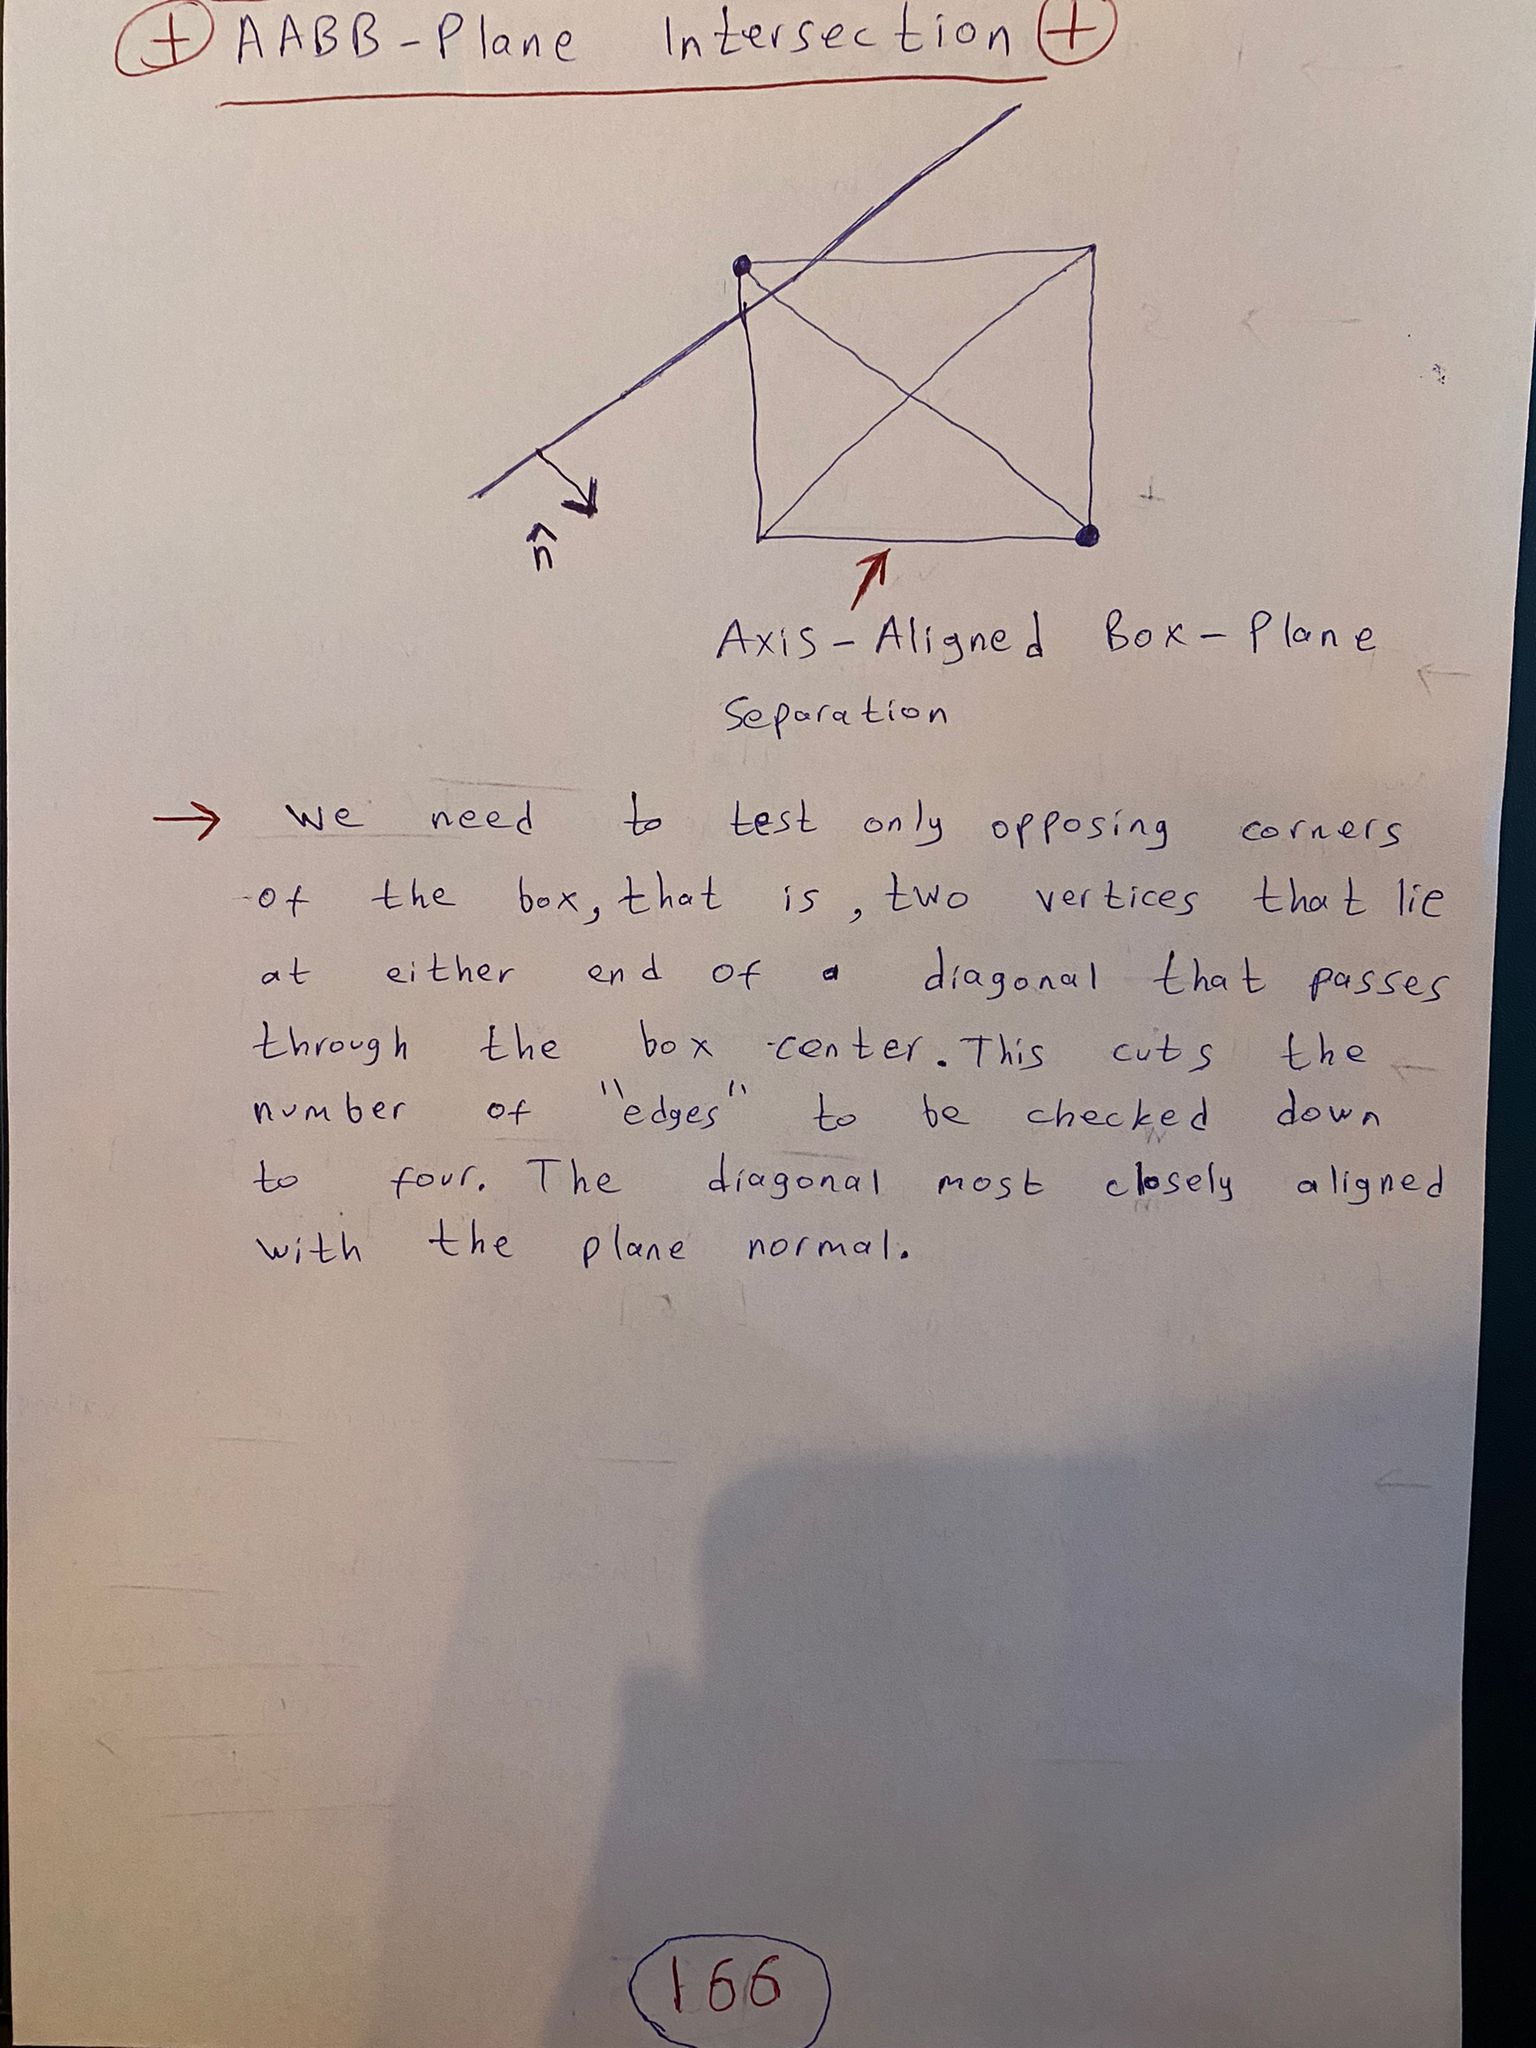 + AABB-Plane Intersection +
n̂
Axis-Aligned Box-Plane
Separation
→ We need to test only opposing corners
of the box, that is, two vertices that lie
at either end of a diagonal that passes
through the box center. This cuts the
number of "edges" to be checked down
to four. The diagonal most closely aligned
with the plane normal.
166